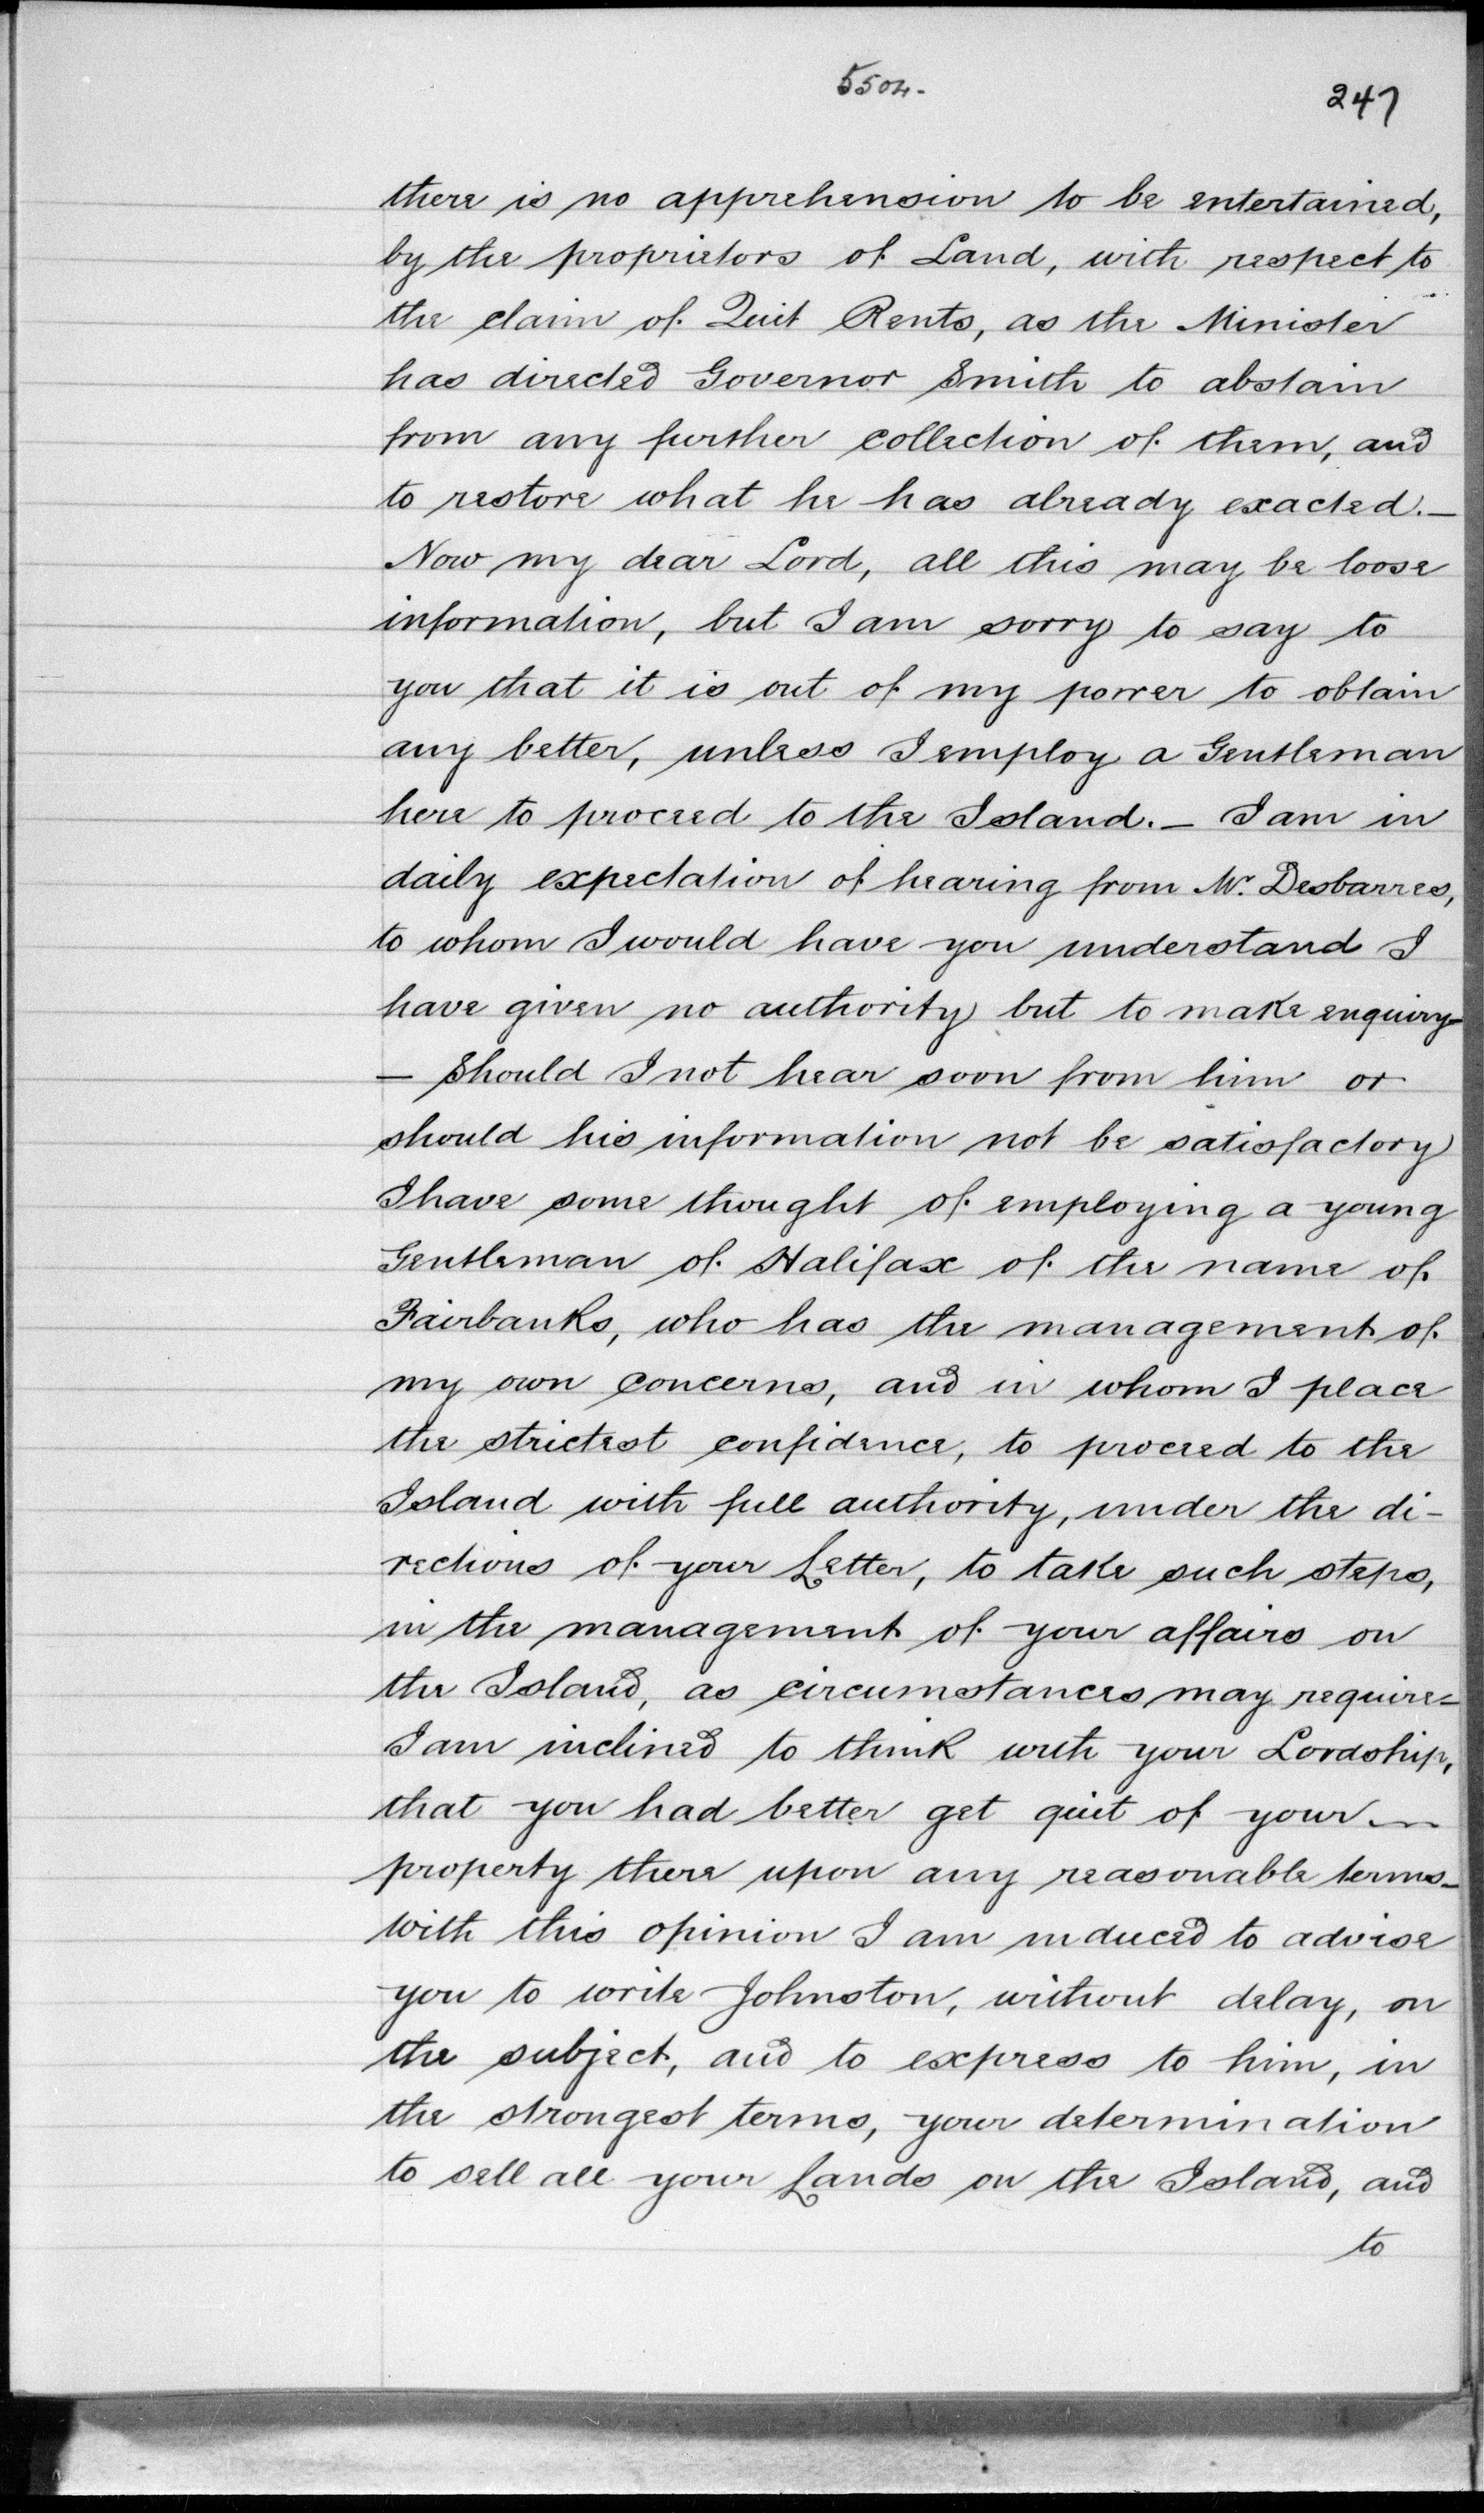 5504.
247
there is no apprehension to be entertained,
by the proprietors of Land, with respect to
the claim of Quit Rents, as the Minister
has directed Governor Smith to abstain
from any further collection of them, and
to restore what he has already exacted.—
Now my dear Lord, all this may be loose
information, but I am sorry to say to
you that it is out of my power to obtain
any better, unless I employ a Gentleman
here to proceed to the Island. — I am in
daily expectation of hearing from Mr. Desbarres,
to whom I would have you understand I
have given no authority but to make enquiry—
— Should I not hear soon from him or
should his information not be satisfactory
I have some thought of employing a young
Gentleman of Halifax of the name of
Fairbanks, who has the management of
my own concerns, and in whom I place
the strictest confidence, to proceed to the
Island with full authority, under the di-
rections of your Letter, to take such steps,
in the management of your affairs on
the Island, as circumstances may require—
I am inclined to think with your Lordship,
that you had better get quit of your —
property there upon any reasonable terms—
With this opinion I am induced to advise
you to write Johnston, without delay, on
the subject, and to express to him, in
the strongest terms, your determination
to sell all your Lands on the Island, and
to